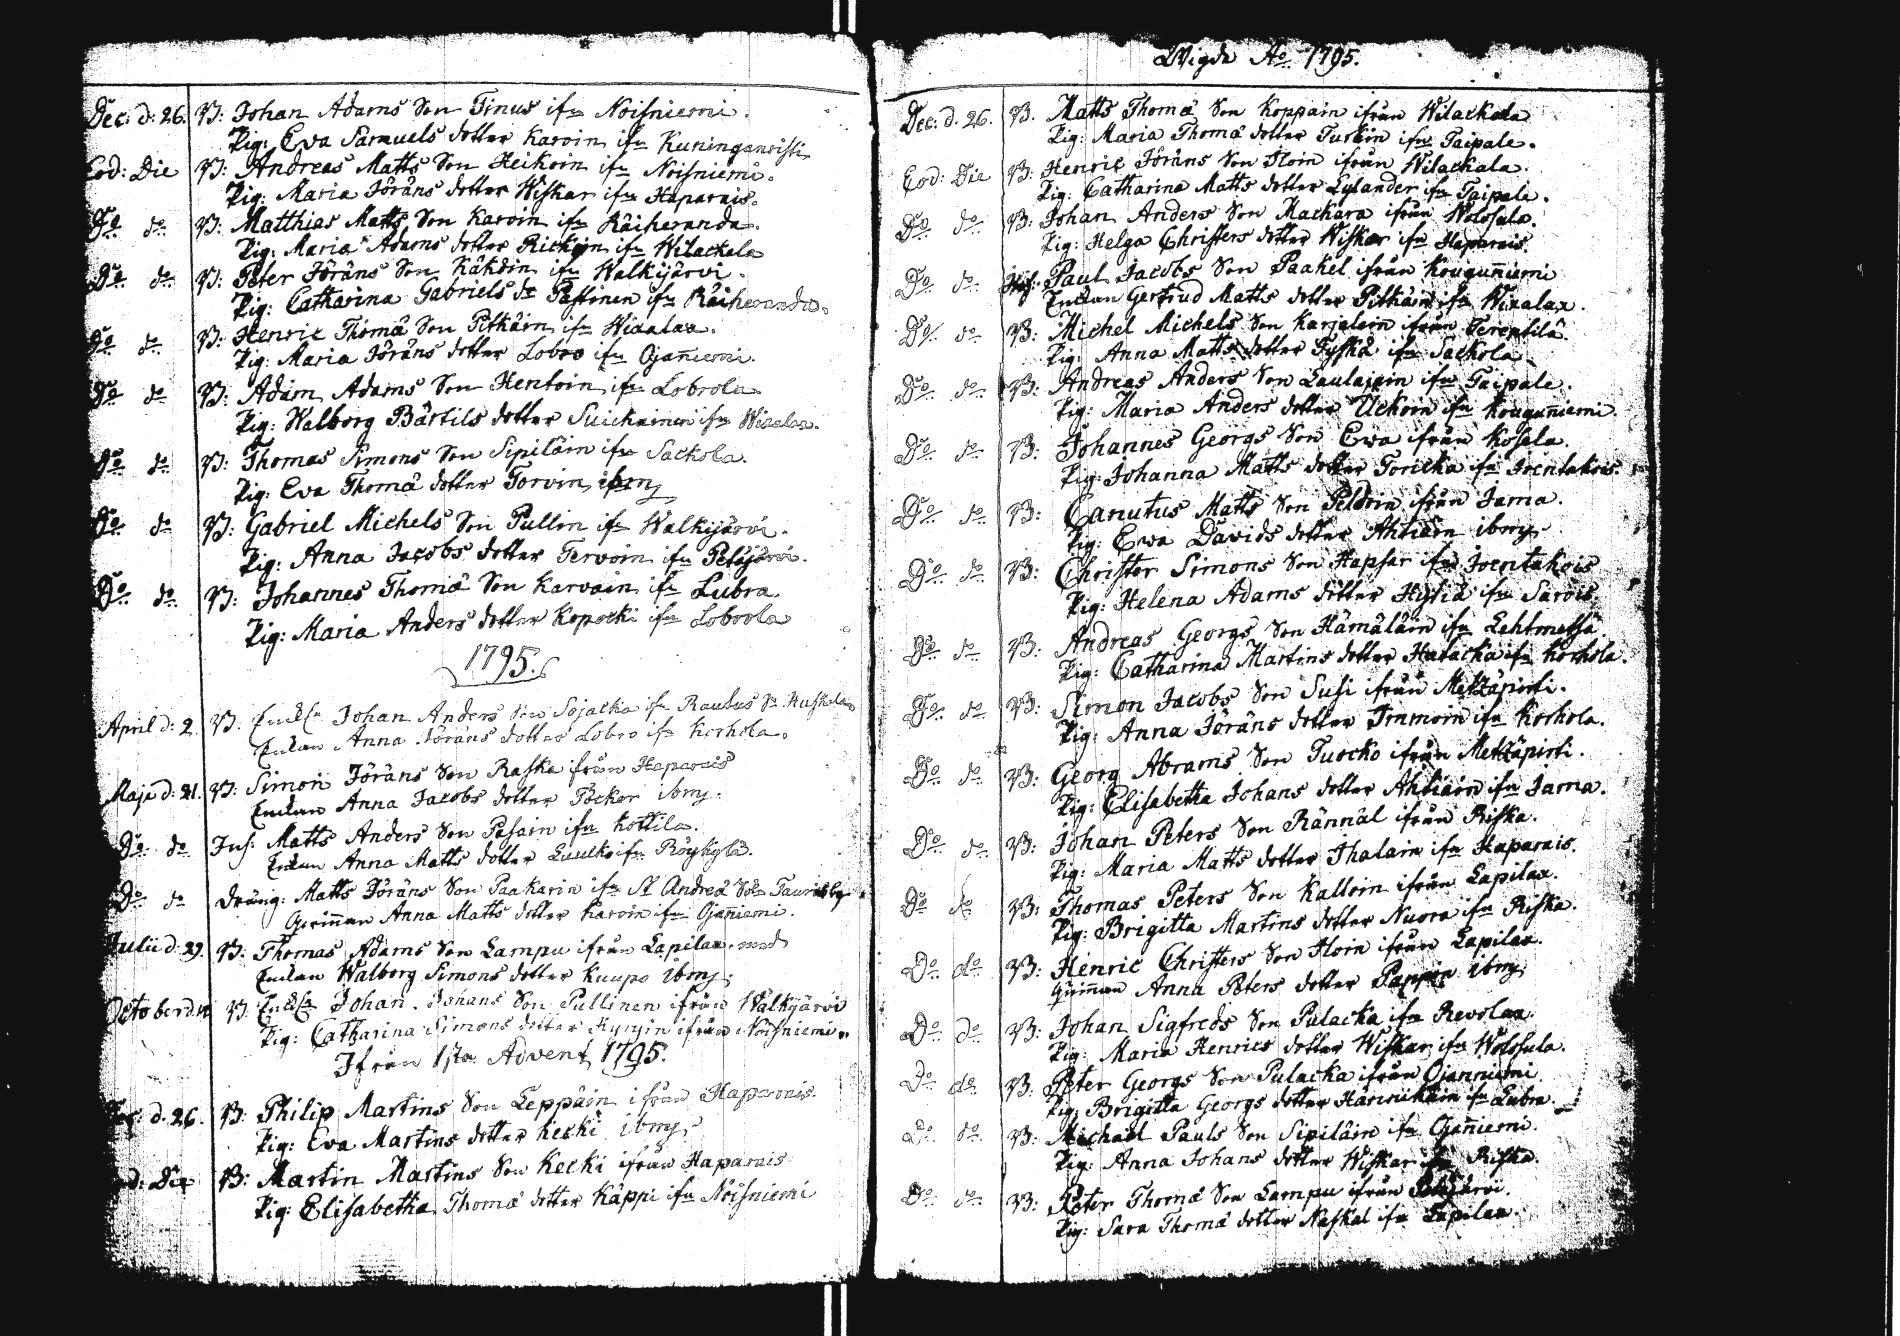 Dec: d: 26. B: Johan Adams Son Tinus ifn Noisniemi.
Pig: Eva Samuels dotter Karvin ifn Kuninganristi
Eod: Die B: Andreas Matts Son Heikoin ifn Noisniemi.
Pig: Maria Jöräns dotter Wiskar ifn Haparais.
Do do B: Matthias Matts Son Karvin ifn Räiheranda.
Pig: Maria Adams dotter Rickoin ifn Wilackala
Do do B: Peter Jöräns Son Käköin ifn Walkijärvi.
Pig: Catharina Gabriels dr Passinen ifn Räiheranda.
Do do B: Henric Thomæ Son Pitkäin ifn Wixalax.
Pig: Maria Jöräns dotter Lobro ifn Ojaniemi.
Do do B: Adam Adams Son Hentoin ifn Lobrola
Pig: Walborg Bärtils dotter Suickainen ifn Wixalax.
Do do B: Thomas Simons Son Sipiläin ifn Sackola.
Pig: Eva Thomæ dotter Torvin ibm
Do do B: Gabriel Michels Son Pullin ifn Walkijärvi.
Pig: Anna Jacobs dotter Tervoin ifn Petäjärvi.
Do do B: Johannes Thomæ Son Karvain ifn Lubra.
Pig: Maria Anders dotter Kopocki ifn Lobrola
1795.
April d: 2. B: Enkl: Johan Anders Son Sojacka ifn Rautus Sn
Enkan Anna Jöräns dotter Lobro ifn Korhola.
Maji d: 21. B: Simon Jöräns Son Raska ifrån Haparais
Enkan Anna Jacobs dotter Pöcker ibm:
Do do Inh: Matts Anders Son Pasain ifn Kottila.
Enkan Anna Matts dotter Luulko ifn Röykylä.
Do do Dräng: Matts Jöräns Son Paakarin ifn St Andreæ Sn
Qvinnan Anna Matts dotter Karvin ifn Ojaniemi.
Julii d: 29. B: Thomas Adams Son Lampu ifrån Lapilax. med
Enkan Walborg Simons dotter Kuupo ibm:
October d. B: Enkl: Johan Johans Son Pullinen ifrån Walkijärvi
Pig: Catharina Simons dotter Kynjin ifrån Noisniemi.
Ifrån 1sta Advent 1795.
Dec: d. 26. B: Philip Martins Son Leppäin ifrån Haparais.
Pig: Eva Martins dotter Kecki ibm:
Eod: Die B: Martin Martins Son Kecki ifrån Haparais
Pig: Elisabetha Thomæ dotter Käppi ifn Noisniemi
Wigde Ao 1795.
Dec: d. 26. B. Matts Thomæ Son Koppain ifrån Wilackala
Pig: Maria Thomæ dotter Turkin ifn Taipale.
Eod: Die B: Henric Jöräns Son Iloin ifrån Wilackala.
Pig: Catharina Matts dotter Lylander ifn Taipale.
Do do B: Johan Anders Son Mackara ifrån Wolosula.
Pig: Helga Christers dotter Wiskar ifn Haparais.
Do do Inh: Paul Jacobs Son Paakel ifrån Kouguniemi
Enkan Gertrud Matts dotter Pitkäin ifn Wixalax.
Do do B: Michel Michels Son Karjalain ifrån Terentilä.
Pig: Anna Matts dotter Tyskä ifn Sackola.
Do do B: Andreas Anders Son Laulajain ifn Taipale.
Pig: Maria Anders dotter Uckoin ifn Kouguniemi.
Do do B: Johannes Georgs Son Ewa ifrån Kosela.
Pig: Johanna Matts dotter Toricka ifn Joentakois.
Do do B: Canutus Matts Son Peldoin ifrån Jama.
Pig: Ewa Davids dotter Ahtiäin ibm:
Do do B: Christer Simons Son Hapsar ifrån Joentakois
Pig: Helena Adams dotter Hytiä ifn Sarois
Do do B: Andreas Georgs Son Hämäläin ifn Lehtmetsä
Pig: Catharina Martins dotter Hatacka ifn Korhola.
Do do B: Simon Jacobs Son Susi ifrån Metzäpirti.
Pig: Anna Jöräns dotter Immoin ifn Korhola.
Do do B: Georg Abrams Son Tuocko ifrån Metzäpirti.
Pig: Elisabetha Johans dotter Ahtiain ifn Jama.
Do do B: Johan Peters Son Rännäl ifrån Riska.
Pig: Maria Matts dotter Ihalain ifn Haparais.
Do do B: Thomas Peters Son Kalloin ifrån Lapilax.
Pig: Brigitta Martins dotter Nuora ifn Riska.
Do do B: Henric Christers Son Iloin ifrån Lapilax.
Qvinnan Anna Peters dotter Pappin ibm:
Do do B: Johan Sigfreds Son Pulacka ifn Revolax.
Pig: Maria Henrics dotter Wiskar ifn Wolosula.
Do do B: Peter Georgs Son Pulacka ifrån Ojanniemi
Pig: Brigitta Georgs dotter ifn Lubra.
Do do B: Michael Pauls Son Sipiläin ifn Ojaniemi.
Pig: Anna Johans dotter Wiskar ifn Riska.
Do do B: Peter Thomæ Son Lampu ifrån Petäjärvi.
Pig: Sara Thomæ dotter Naskal ifn Lapilax.